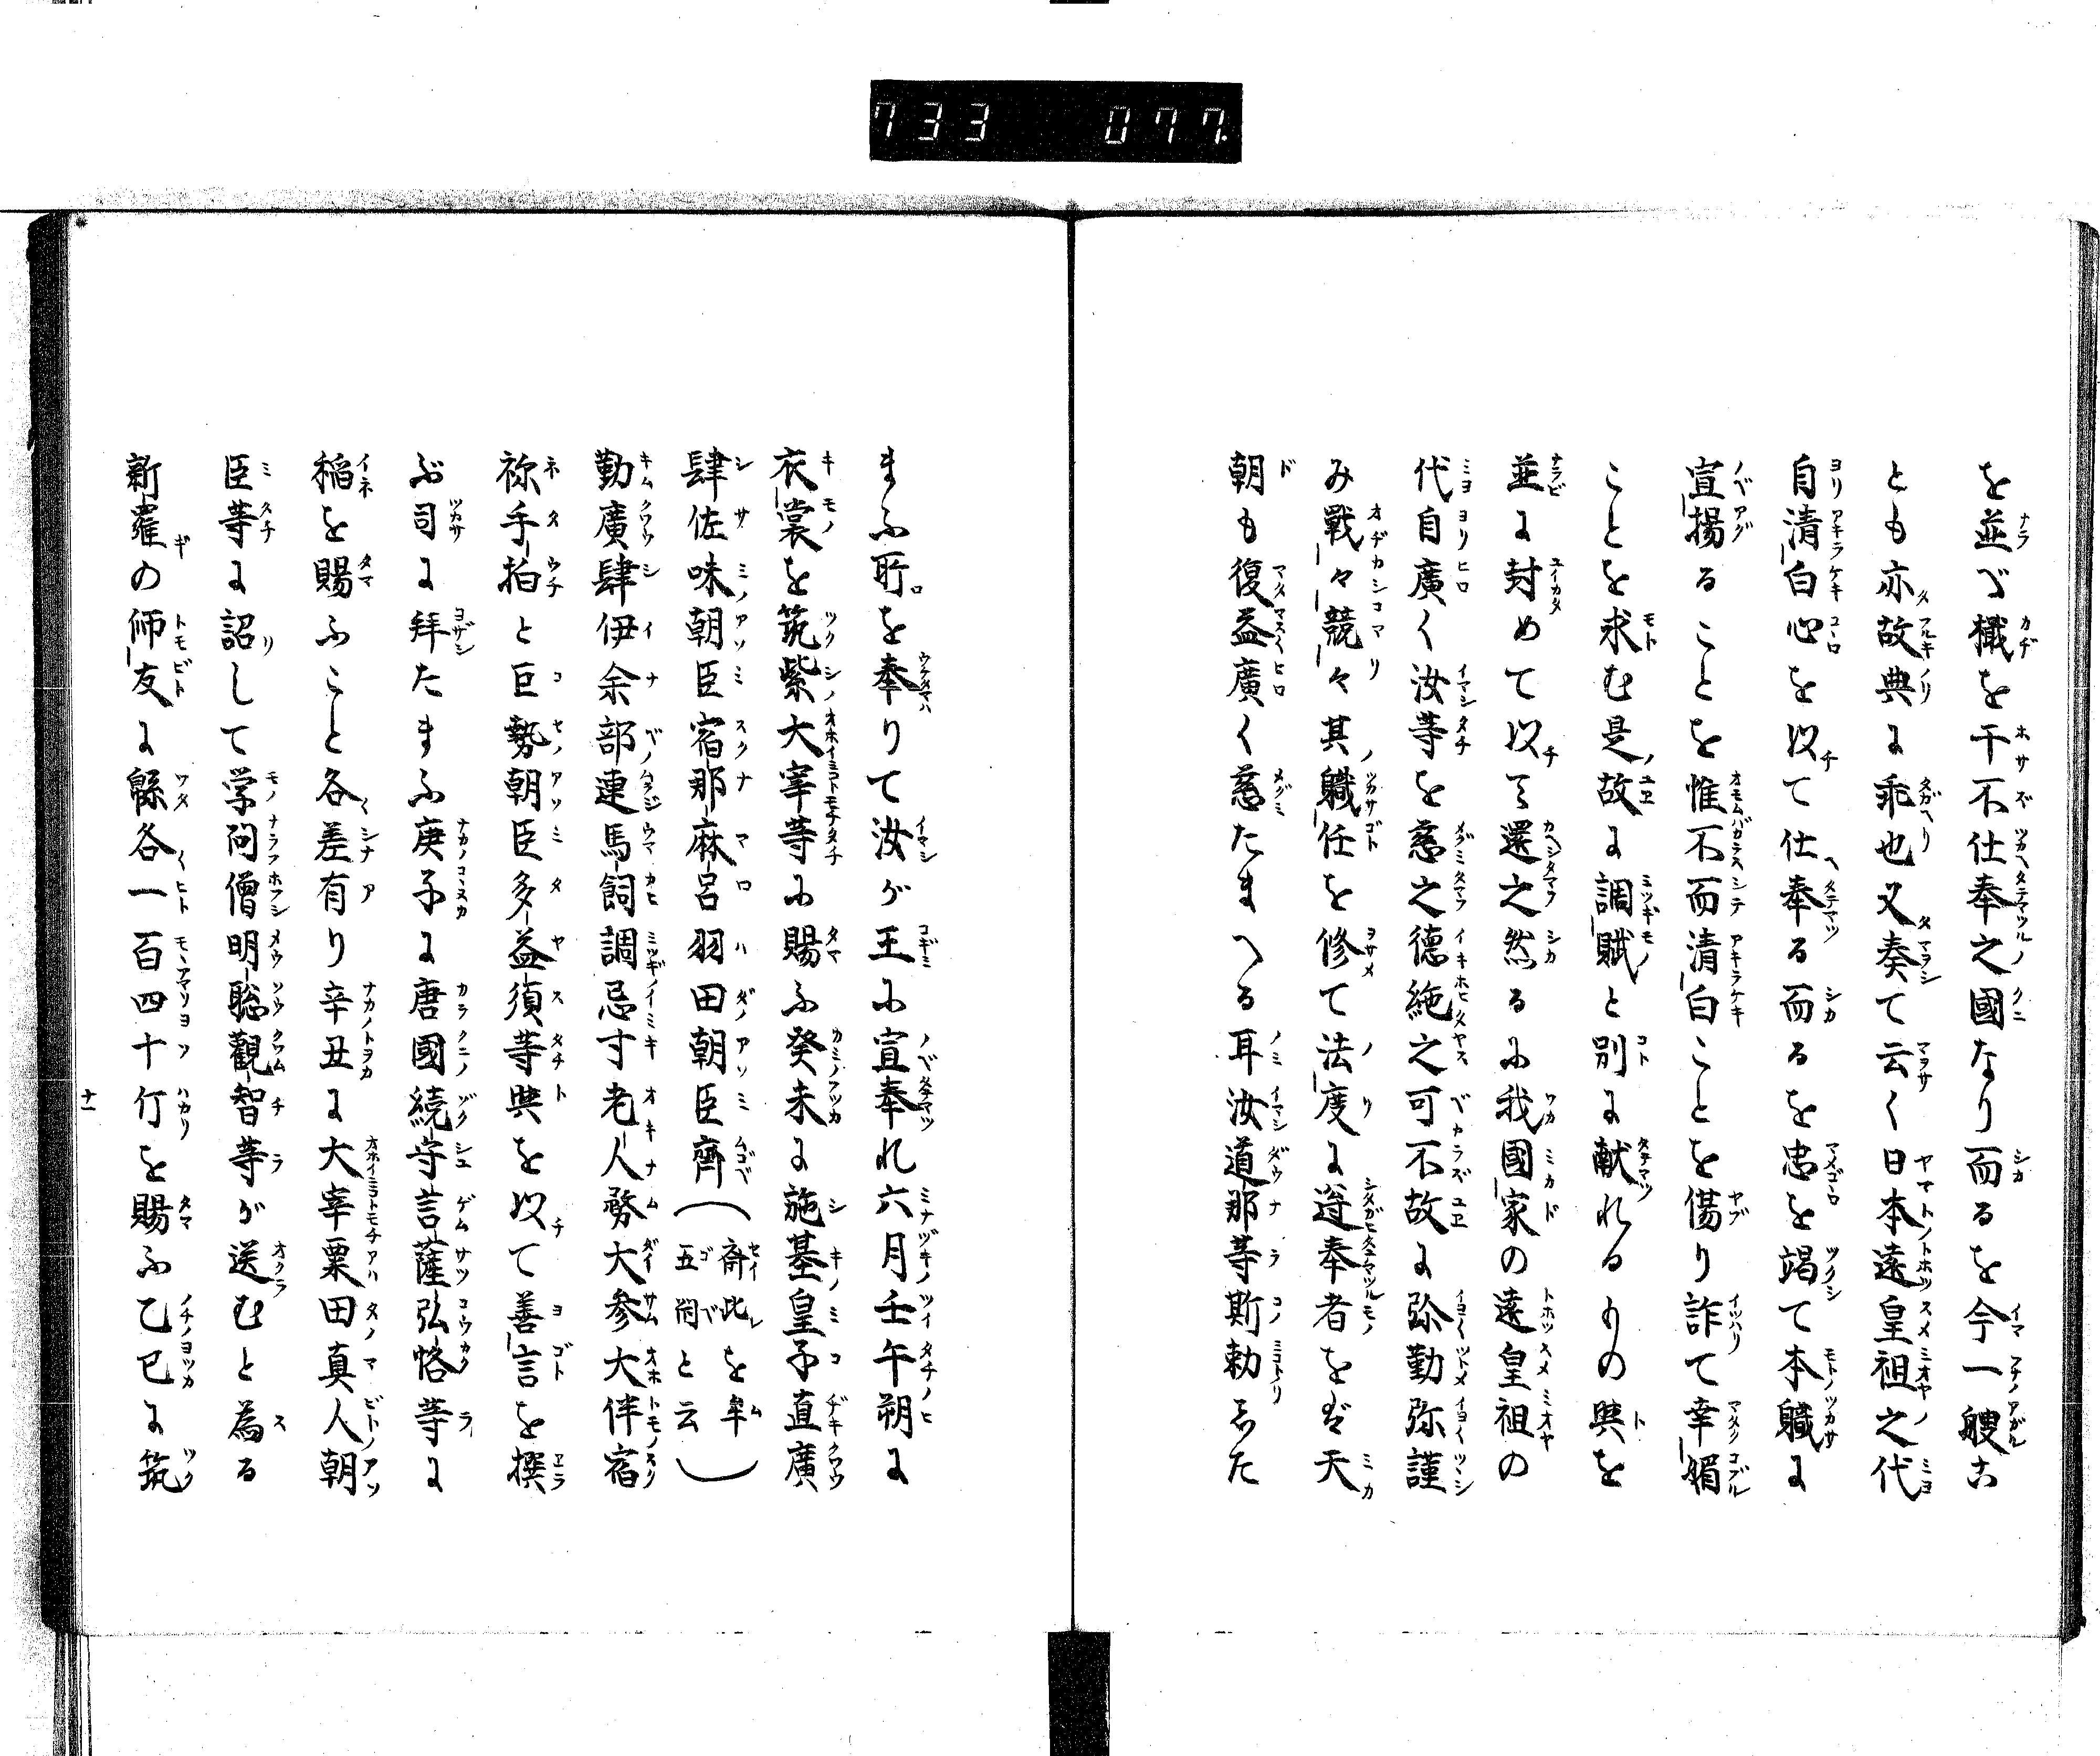 733 077.
を並べ檝を干不仕奉之國なり而るを今一艘亡
とも亦故典に乖也又奏て云く日本遠皇祖之代
自清白心を以て仕奉る而るを忠を竭て本職に
宣揚ることを惟不而清白ことを傷り詐て幸媚
ことを求む是故に調賦と別に献れるものと
並に封めて以て還之然るに我國家の遠皇祖の
代自廣く汝等を慈之德絶之可不故に弥勤弥謹
み戰々競々其職任を修て法度に遵奉者をば天
朝も復益廣く慈たまへる耳汝道那等斯勅えた
まふ所を奉りて汝が王に宣奉れ六月壬午朔に
衣裳を筑紫大宰等に賜ふ癸未に施基皇子直廣
肆佐味朝臣宿那麻呂羽田朝臣齊（齊此を牟五閇と云）
勤廣肆伊余部連馬飼調忌寸老人務大参大伴宿
祢手拍と巨勢朝臣多益須等與を以て善言を撰
ぶ司に拜たまふ庚子に唐國続守言薩弘恪等に
稲を賜ふこと各差有り辛丑に大宰粟田真人朝
臣等に詔して学問僧明聡觀智等が送むと為る
新羅の師友に緜各一百四十斤を賜ふ乙巳に筑
十一